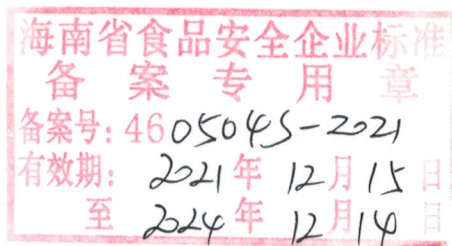 海南省食品安全企业标准
备案专用章
备案号:4605045-2021
有效期:2021年12月15日
至2024年12月14日